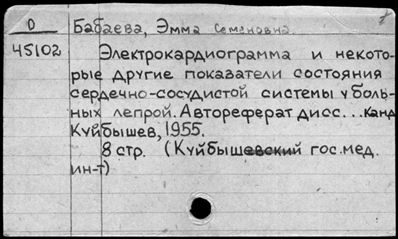 О Бабаева, Эмма Семеновна.
45102 Электрокардиограмма и некото-
рые другие показатели состояния
сердечно-сосудистой системы у боль-
ных лепрой. Автореферат дисс... канд
Куйбышев, 1955.
8 стр. (Куйбышевский гос. мед.
ин-т)